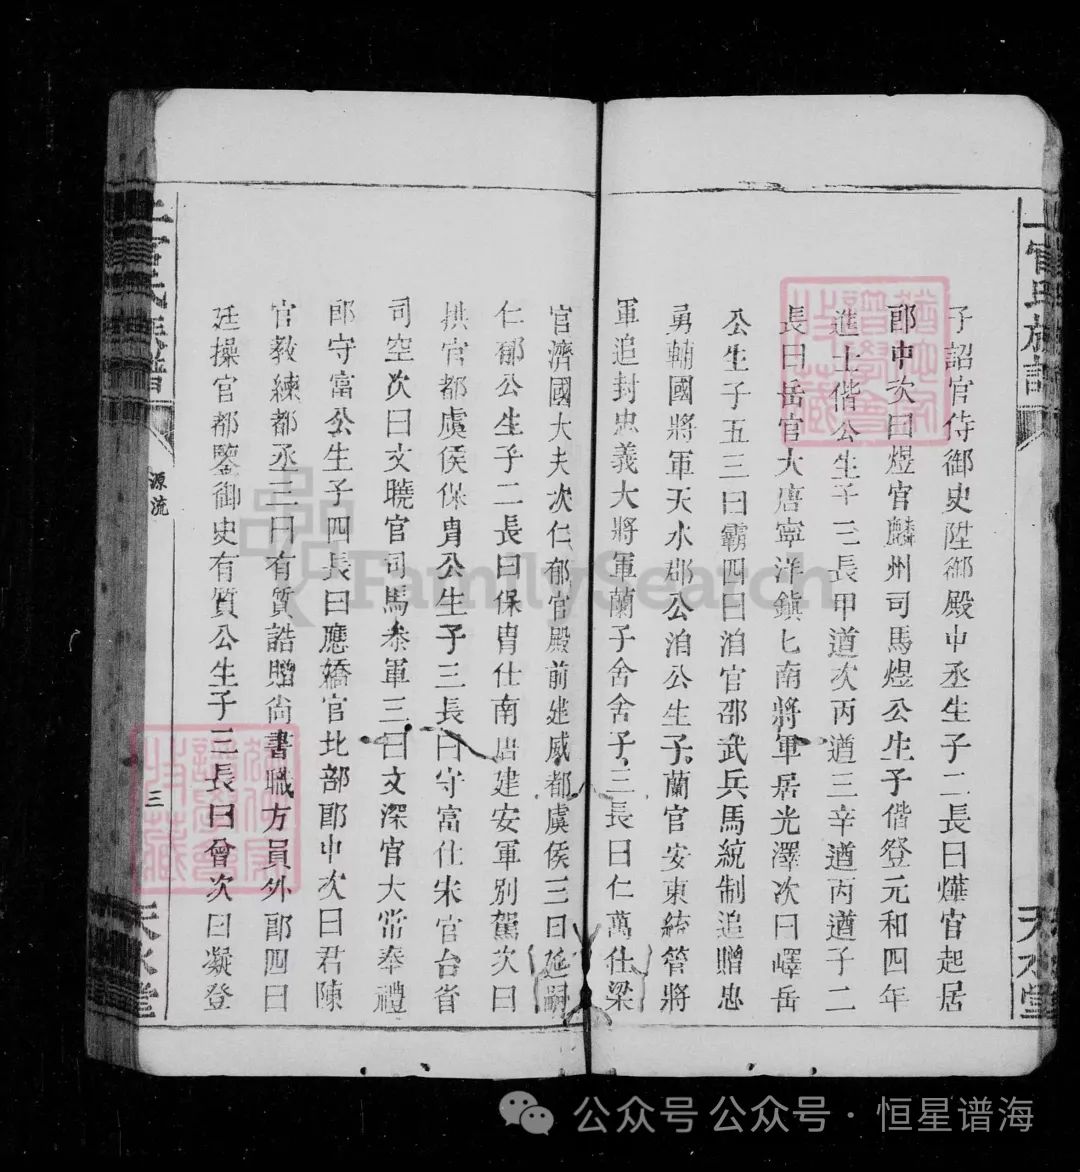 上官氏族譜
天水堂
子詔官侍御史陞御殿中丞生子二長曰燁官起居
郎中次曰煜官麟州司馬煜公生子偕登元和四年
進士偕公生子三長甲遒次丙遒三辛遒丙遒子二
長曰岳官大唐寧洋鎮七南將軍居光澤次曰嶧岳
公生子五三曰霸四曰洎官邵武兵馬統制追贈忠
勇輔國將軍天水郡公洎公生子蘭官安東統管將
軍追封忠義大將軍蘭子舍舍子三長曰仁萬仕梁
官濟國大夫次仁郁官殿前建威都虞侯三曰延嗣
仁郁公生子二長曰保胄仕南唐建安軍別駕次曰
拱官都虞侯保胄公生子三長曰守富仕宋官台省
司空次曰文曉官司馬叅軍三曰文深官大常奉禮
郎守富公生子四長曰應繑官北部郎中次曰君陳
官教練都丞三曰有質誥贈尙書職方員外郎四曰
廷操官都鑒御史有質公生子三長曰曾次曰凝登
上官氏族譜
源流
三
天水堂
FamilySearch
公众号 公众号 · 恒星谱海